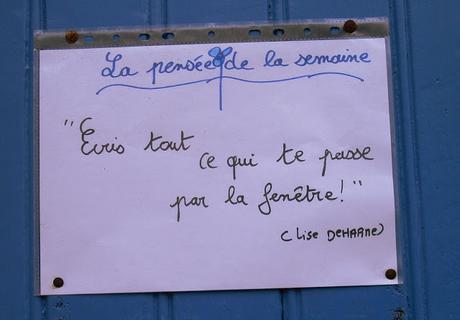 La pensée de la semaine
"Écris tout
ce qui te passe
par la fenêtre!"
(Lise DeHARNe)